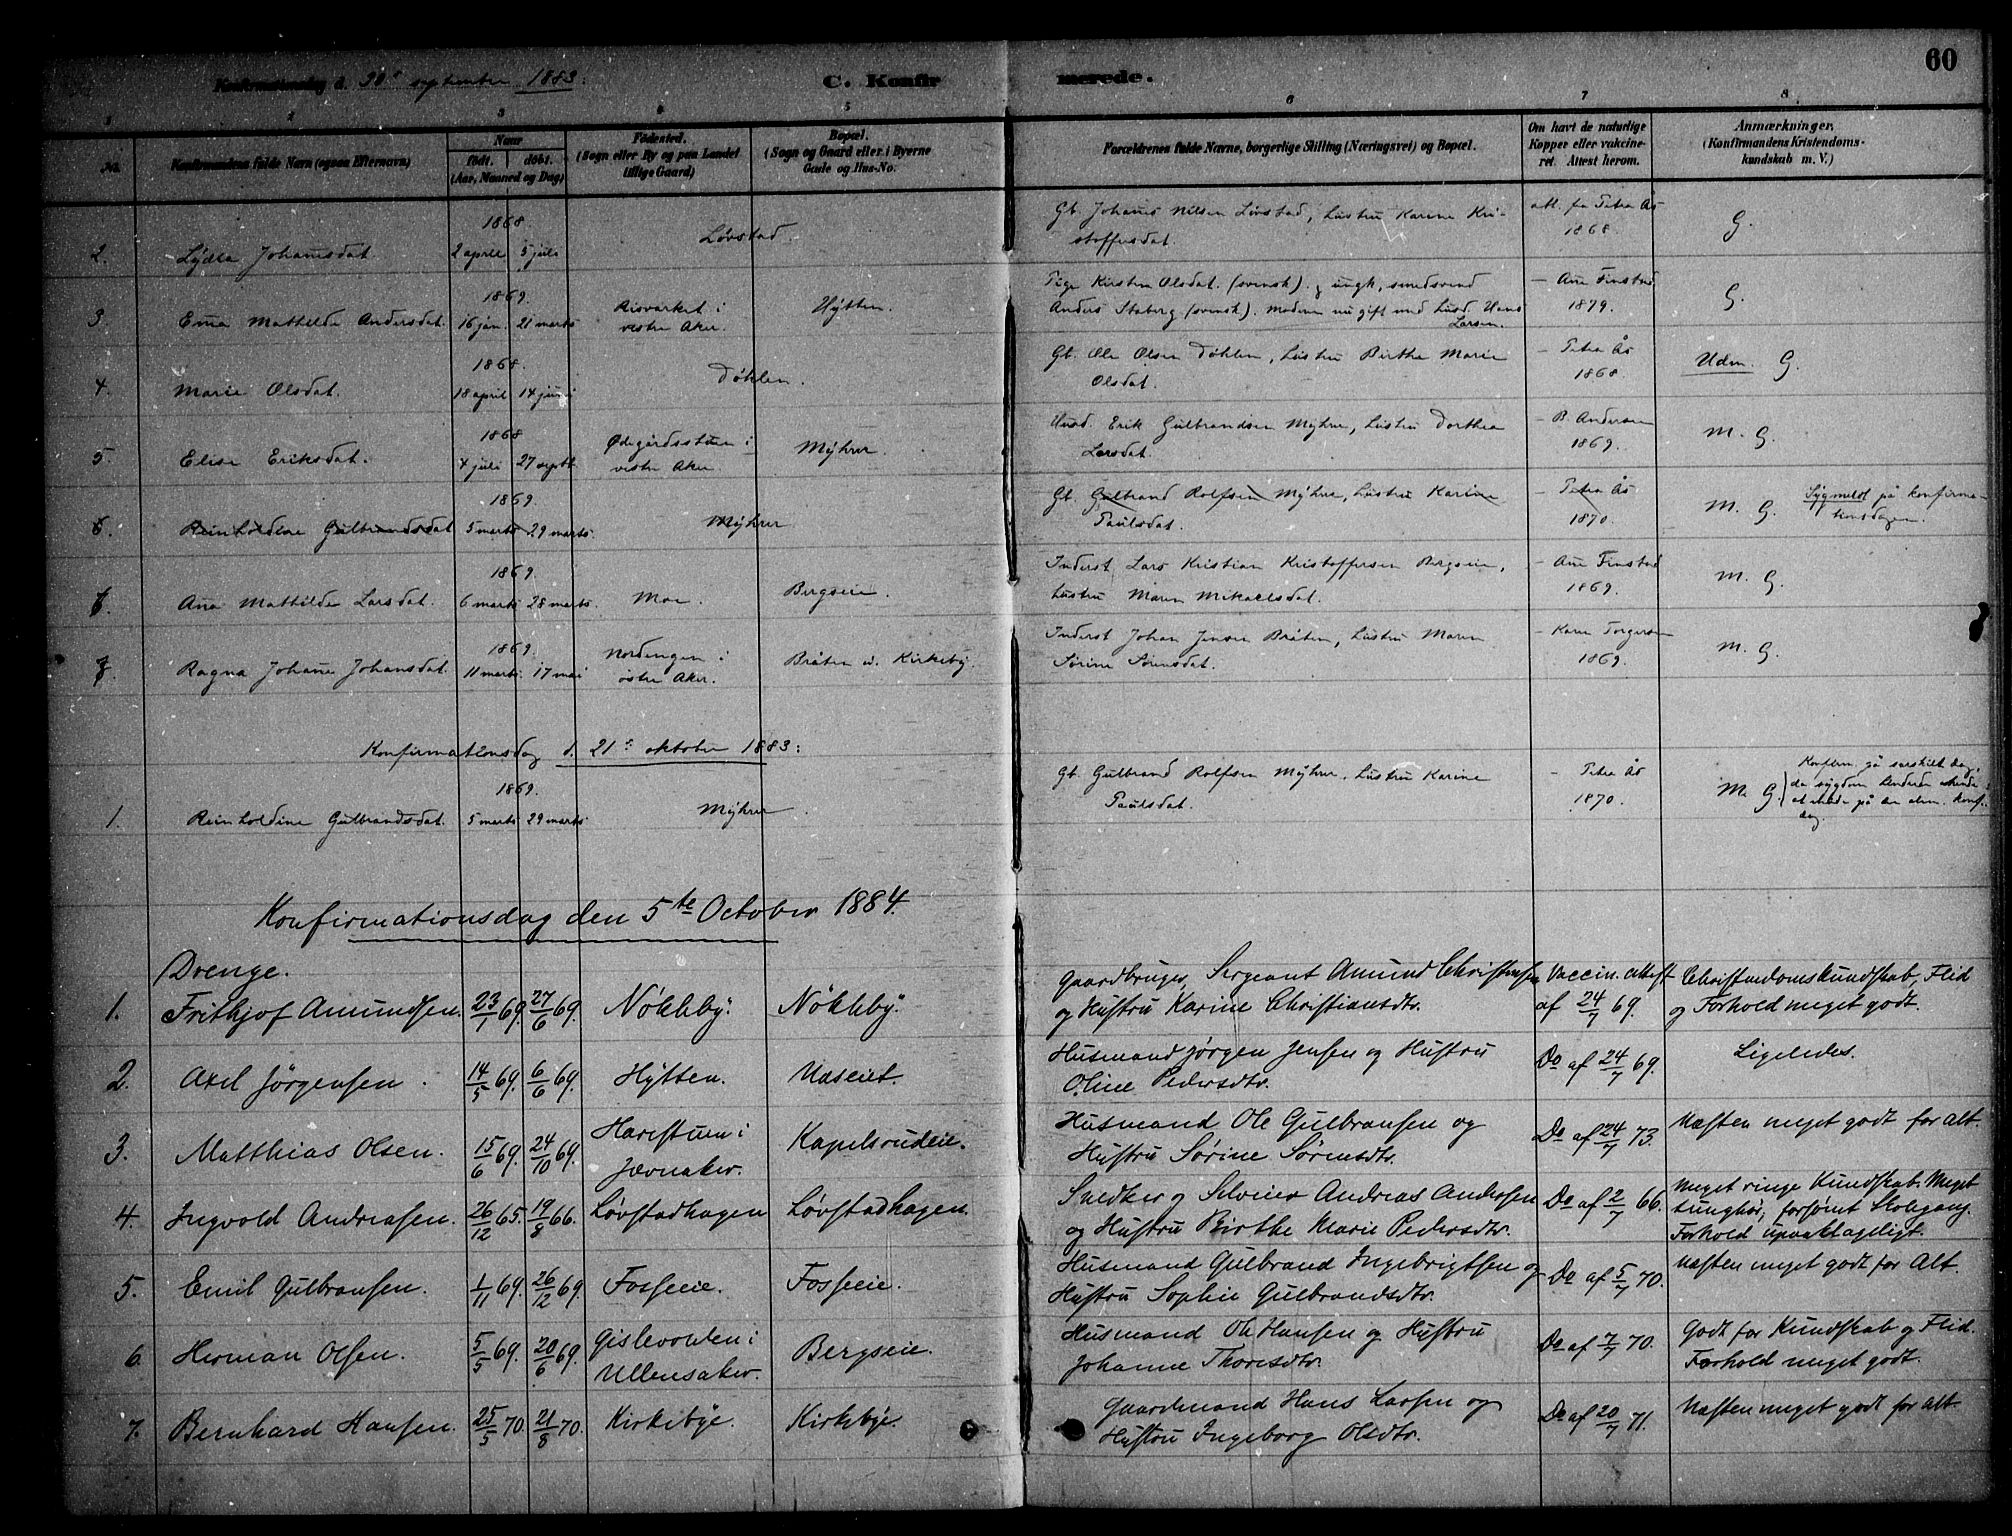 60
Konfirmationsdag d. 30te september 1883.
C. Konfirmerede.
1 2 3 4 5 6 7 8
No.
Konfirmandens fulde Navn (ogsaa Efternavn)
Naar
født. døbt.
(Aar, Maaned og Dag)
Fødested.
(Sogn eller By og paa Landet
tillige Gaard)
Bopæl.
(Sogn og Gaard eller i Byerne
Gade og Hus-No.
Forældrenes fulde Navne, borgerlige Stilling (Næringsvei) og Bopæl.
Om havt de naturlige
Kopper eller vakcine-
ret. Attest herom.
Anmærkninger.
(Konfirmandens Kristendoms-
kundskab m. V.)
2. Lydia Johansdat. 1868 2 april 5 juli Løvstad. Gb. Johans Nilsen Løvstad, hustru Karine Kri-
stoffersdat. att. fra Petra Ås 1868. G.
3. Ema Mathilde Andersdat. 1869. 16 jan. 21 marts Risverket i
vestre Aker. Hytten. Pige Kirsten Olsdat. (svensk). og ungk. smedsvend
Anders Staberg (svensk). Moderen nu gift med husd. Hans
Larsen. – Ane Finstad 1879. G.
4. Marie Olsdat. 1868. 18 april 14 juni Døhlen. Gb. Ole Olsen Døhlen, hustru Birthe Marie
Olsdat. – Petra Ås 1868. Udm. G.
5. Elise Eriksdat. 1868 4 juli 27 septb. Ødegårdsstuen i
vestre Aker. Myhrer. Husd. Erik Gulbrandsen Myhrer, hustru Dorthea
Larsdat. – B. Andersen 1869. M. G.
6. Reinholdine Gulbrandsdat. 1869. 5 marts 29 marts. Myhrer Gb. Gulbrand Rolfsen Myhrer, hustru Karine
Paulsdat. – Petra Ås 1870. M. G. Sygmeldt på konfirma-
tionsdagen.
6. Ana Mathilde Larsdat. 1869. 6 marts 28 marts. Moe. Bergseie. Inderst Lars Kristian Kristoffersen Bergseie,
hustru Maren Mikaelsdat. – Ane Finstad 1869. M. G.
7. Ragna Johane Johansdat. 1869. 11 marts. 17 mai Nordengen i
østre Aker. Bråten u. Kirkeby. Inderst Johan Jensen Bråten, hustru Maren
Sørine Sørensdat. – Karen Torgersen 1869. M. G.
Konfirmationsdag d. 21de oktober 1883:
1. Reinholdine Gulbrandsdat. 1869. 5 marts 29 marts Myhrer. Gb. Gulbrand Rolfsen Myhrer, hustru Karine
Paulsdat. – Petra Ås 1870. M. G. Konfirm. på særskilt dag,
da sygdom hindrede hende i
at møde på den alm. konf.
dag.
Konfirmationsdag den 5te October 1884.
Drenge.
1. Frithjof Amundsen. 23/1 69. 27/6 69. Nökleby. Nökleby. Gaardbruger, Sergeant Amund Christensen
og Hustru Karine Christiansdtr. Vaccin. attest
af 24/7 69. Christendomskundskab, Flid
og Forhold meget godt.
2. Axel Jörgensen. 14/5 69. 6/6 69. Hytten. Naseiet. Husmand Jørgen Jensen og Hustru
Oline Pedersdtr. Do af 24/7 69. Ligeledes.
3. Matthias Olsen. 15/6 69. 24/10 69. Harestuen i
Jævnaker. Kapelsrudeie. Husmand Ole Gulbransen og
Hustru Sørine Sørensdtr. Do af 24/7 73. Næsten meget godt for alt.
4. Ingvold Andreasen. 26/12 65. 19/8 66. Løvstadhagen Løvstadhagen. Snedker og Selveier Andreas Andersen
og Hustru Birthe Marie Pedersdtr. Do af 2/7 66. Meget ringe Kundskab. Meget
tunghør, forsømt Skolegang.
Forhold upaaklageligt.
5. Emil Gulbransen. 1/11 69. 26/12 69. Fosseie. Fosseie. Husmand Gulbrand Ingebrigtsen og
Hustru Sophie Gulbrandsdtr. Do af 5/7 70. Næsten meget godt for Alt.
6. Herman Olsen. 5/5 69. 20/6 69. Gislevolden i
Ullensaker. Bergseie. Husmand Ole Hansen og Hustru
Johanne Thoresdtr. Do af 7/7 70. Godt for Kundskab og Flid.
Forhold meget godt.
7. Bernhard Hansen. 25/5 70. 21/8 70. Kirkebye. Kirkebye. Gaardmand Hans Larsen og
Hustru Ingeborg Olsdtr. Do af 20/7 71. Næsten meget godt for alt.